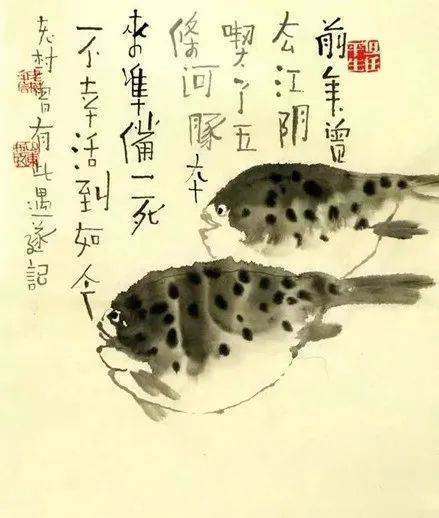 前年曾
去江阴
喫了五
條河豚夲
來準備一死
不幸活到如今
老村曾有此遇遂記